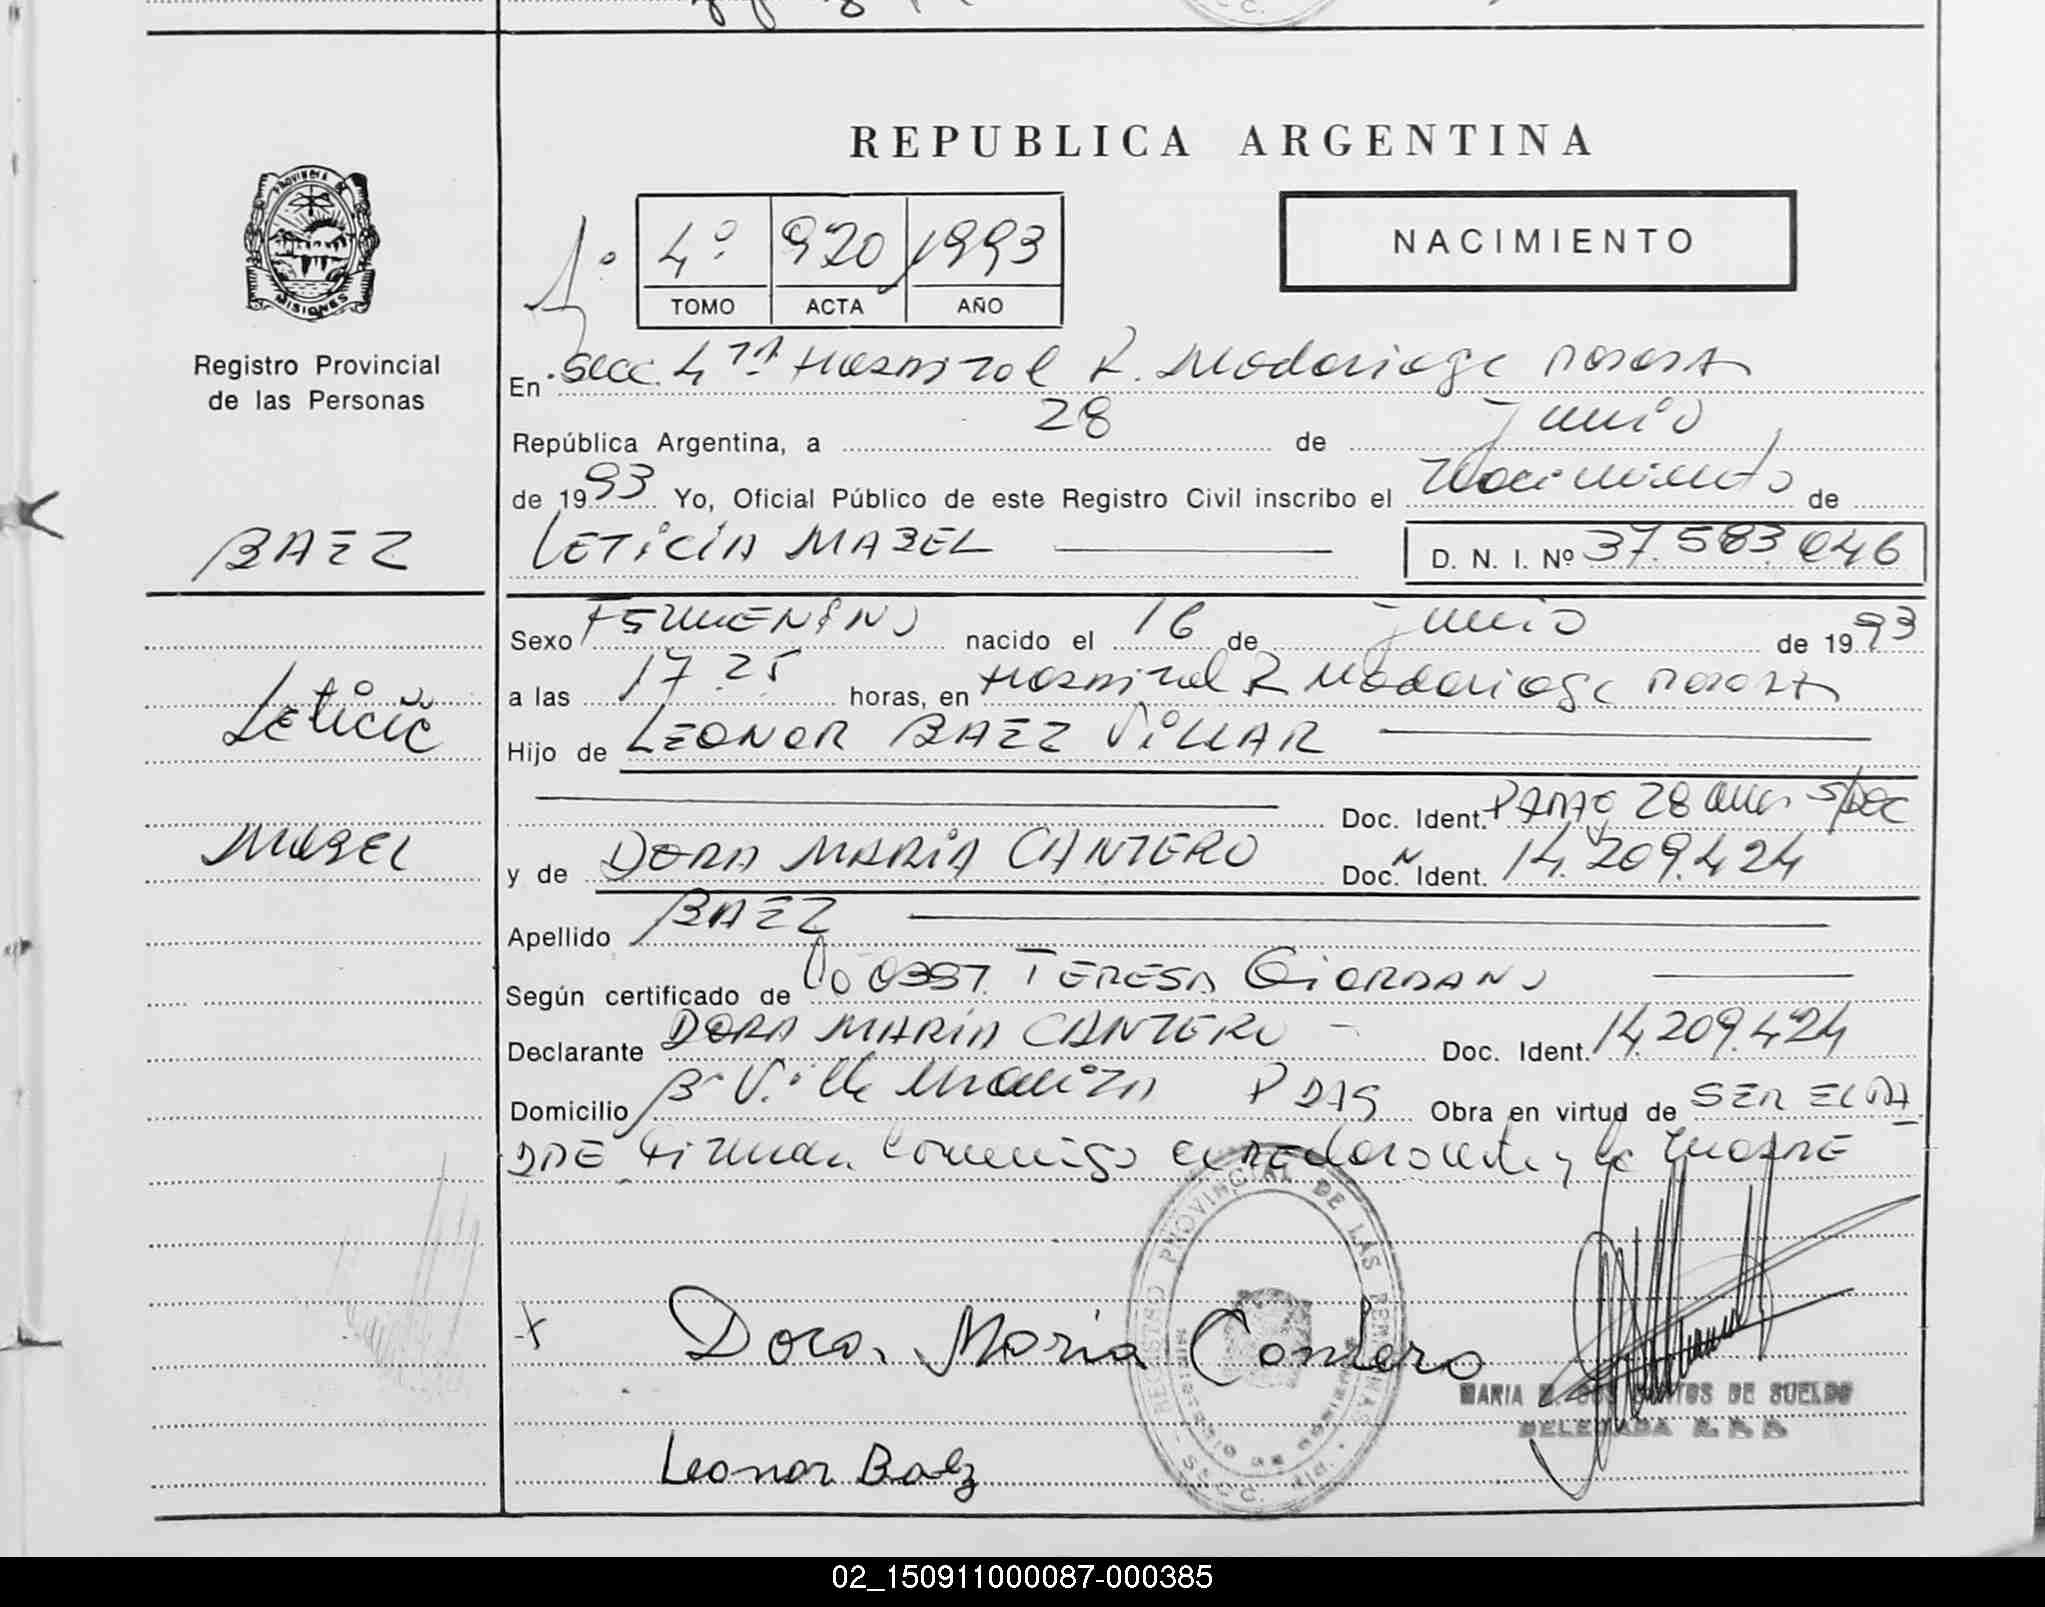 REPUBLICA ARGENTINA
PROVINCIA DE
MISIONES
Registro Provincial
de las Personas
1º 4º 920 1993
TOMO ACTA AÑO
NACIMIENTO
En Secc. 4ta Hospital R. Madariaga
República Argentina, a 28 de Junio
de 1993 Yo, Oficial Público de este Registro Civil inscribo el Nacimiento de
BAEZ
Leticia
MABEL
LETICIA MABEL D. N. I. Nº 37.583.046
Sexo FEMENINO nacido el 16 de Junio de 1993
a las 17.25 horas, en Hospital R Madariaga
Hijo de LEONOR BAEZ VILLAR
Doc. Ident. 28 años s/Doc
y de DORA MARIA CANTERO Doc. Ident. 14.209.424
Apellido BAEZ
Según certificado de TERESA GIORDANO
Declarante DORA MARIA CANTERO - Doc. Ident. 14.209.424
Domicilio Bº Villa PDAS Obra en virtud de SER EL PA
DRE Firman conmigo el Declarante y la MADRE
REGISTRO PROVINCIAL DE LAS PERSONAS
x Dora Maria Cantero
MARIA SANTOS DE SUELDO
DELEGADA R. P. P.
Leonor Baez
02_150911000087-000385